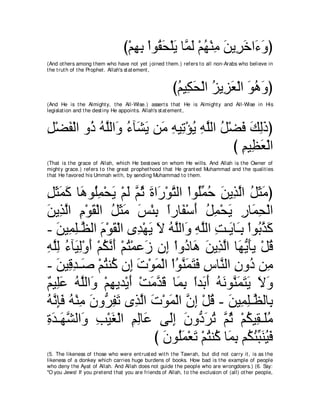 (وَءَاخَرِينَ مِنْهُمْ لَمَّا يَلْحَقُواْ بِهِمْ)
(And others among them who have not yet joined them.) refers to all non-Arabs who believe in the truth of the Prophet. Allah's statement,
(وَهُوَ الْعَزِيزُ الْحَكِيمُ)
(And He is the Almighty, the All-Wise.) asserts that He is Almighty and All-Wise in His legislation and the destiny He appoints. Allah's statement,
(ذَلِكَ فَضْلُ اللَّهِ يُؤْتِيهِ مَن يَشَآءُ وَاللَّهُ ذُو الْفَضْلِ
الْعَظِيمِ )
(That is the grace of Allah, which He bestows on whom He wills. And Allah is the Owner of mighty grace.) refers to the great prophethood that He granted Muhammad and the qualities that He favored his Ummah with, by sending Muhammad to them.
(مَثَلُ الَّذِينَ حُمِّلُواْ التَّوْرَاةَ ثُمَّ لَمْ يَحْمِلُوهَا كَمَثَلِ
الْحِمَارِ يَحْمِلُ أَسْفَاراً بِئْسَ مَثَلُ الْقَوْمِ الَّذِينَ
كَذَّبُواْ بِـَايَـتِ اللَّهِ وَاللَّهُ لاَ يَهْدِى الْقَوْمَ الظَّـلِمِينَ -
قُلْ يأَيُّهَا الَّذِينَ هَادُواْ إِن زَعمْتُمْ أَنَّكُمْ أَوْلِيَآءُ لِلَّهِ
مِن دُونِ النَّاسِ فَتَمَنَّوُاْ الْمَوْتَ إِن كُنتُمْ صَـدِقِينَ -
وَلاَ يَتَمَنَّونَهُ أَبَداً بِمَا قَدَّمَتْ أَيْديهِمْ وَاللَّهُ عَلِيمٌ
بِالظَّـلِمِينَ - قُلْ إِنَّ الْمَوْتَ الَّذِى تَفِرُّونَ مِنْهُ فَإِنَّهُ
مُلَـقِيكُمْ ثُمَّ تُرَدُّونَ إِلَى عَالِمِ الْغَيْبِ وَالشَّهَـدَةِ
فَيُنَبِّئُكُم بِمَا كُنتُمْ تَعْمَلُونَ )
(5. The likeness of those who were entrusted with the Tawrah, but did not carry it, is as the likeness of a donkey which carries huge burdens of books. How bad is the example of people who deny the Ayat of Allah. And Allah does not guide the people who are wrongdoers.) (6. Say: "O you Jews! If you pretend that you are friends of Allah, to the exclusion of (all) other people,